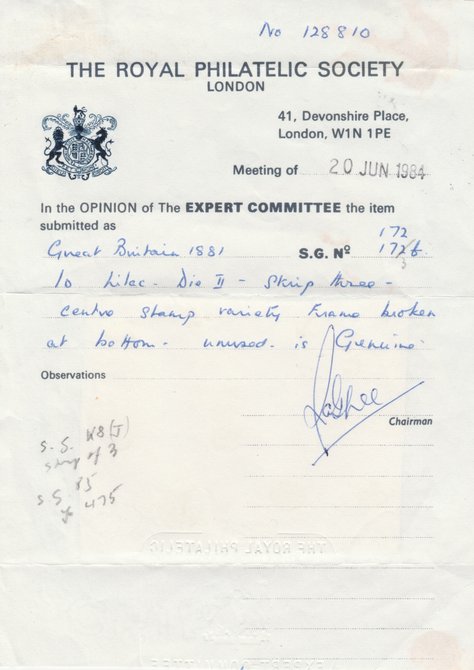 No 128810
THE ROYAL PHILATELIC SOCIETY
LONDON
41, Devonshire Place,
London, W1N 1PE
Meeting of 20 JUN 1984
In the OPINION of The EXPERT COMMITTEE the item
submitted as
172
Great Britain 1881 S.G. Nº
1d Lilac - Die II - Strip three -
centre stamp variety Frame broken
at bottom - unused - is Genuine.
Observations
Chairman
S.G. K8(J)
strip of 3
S.G. 85
475
THE ROYAL PHILATELIC
EXPERT COMMITTEE